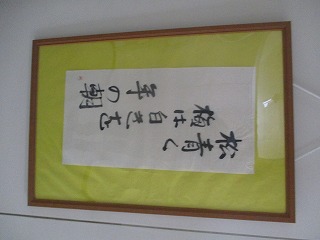 松青く
梅は白きを
年の朝